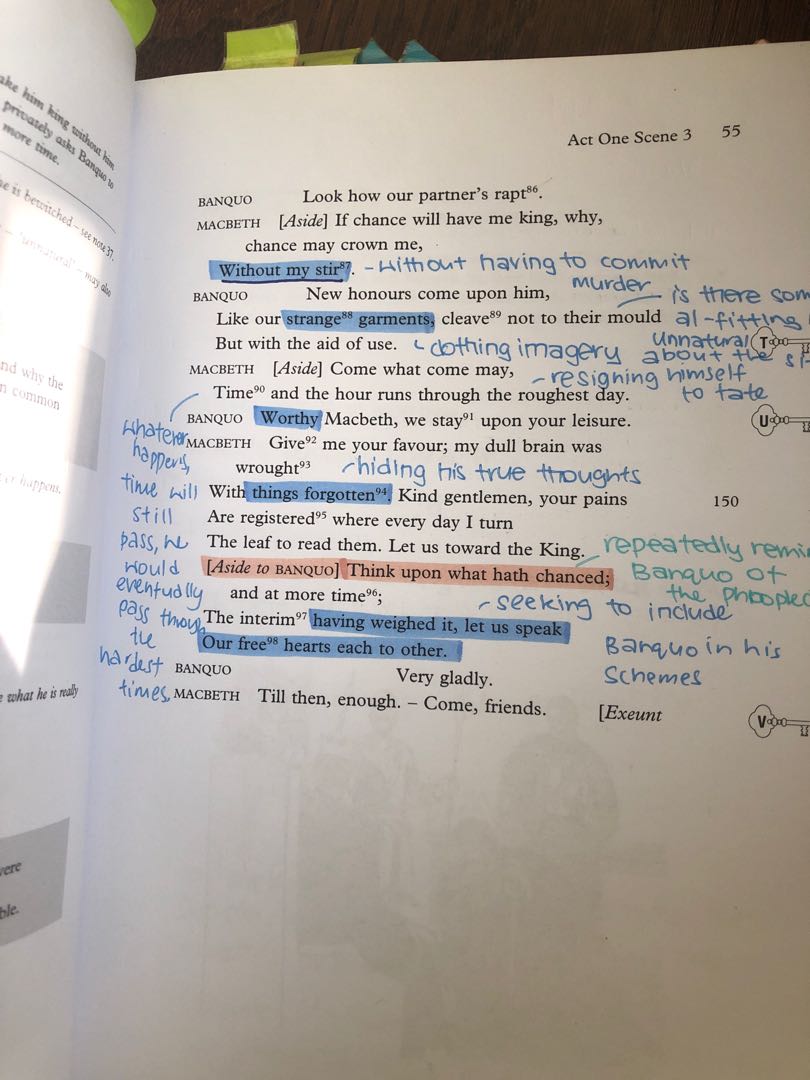 ake him king without him
privately asks Banquo to
more time.
e is bewitched – see note 37.
– 'unnatural' – may also
nd why the
n common
er happens.
e what he is really
vere
ble.
Act One Scene 3 55
BANQUO Look how our partner's rapt⁸⁶.
MACBETH [Aside] If chance will have me king, why,
chance may crown me,
Without my stir⁸⁷. - without having to commit
murder
BANQUO New honours come upon him,
is there som
Like our strange⁸⁸ garments, cleave⁸⁹ not to their mould
al-fitting
But with the aid of use.
clothing imagery
unnatural
about the
T
MACBETH [Aside] Come what come may,
- resigning himself
to fate
Time⁹⁰ and the hour runs through the roughest day.
BANQUO Worthy Macbeth, we stay⁹¹ upon your leisure.
U
MACBETH Give⁹² me your favour; my dull brain was
wrought⁹³
hiding his true thoughts
With things forgotten⁹⁴. Kind gentlemen, your pains 150
Are registered⁹⁵ where every day I turn
The leaf to read them. Let us toward the King.
repeatedly remin
Banquo of
the
[Aside to BANQUO] Think upon what hath chanced;
and at more time⁹⁶;
- seeking to include
Banquo in his
schemes
The interim⁹⁷ having weighed it, let us speak
Our free⁹⁸ hearts each to other.
BANQUO Very gladly.
MACBETH Till then, enough. – Come, friends. [Exeunt
V
whatever
happens,
time will
still
pass, he
would
eventually
pass through
the
hardest
times.